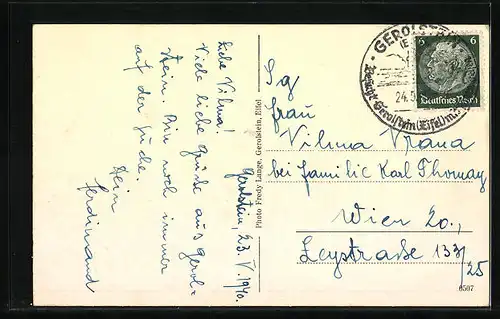 Gerolstein, 23. V. 1940.
Liebe Vilma!
Viele liebe Grüße aus Gerol=
stein. Bin noch immer
auf der Suche.
Dein
Ferdinand
Photo Fredy Lange, Gerolstein, Eifel
GEROLSTEIN
24.5.
6 6
Deutsches Reich
Frau
Vilma Vrana
bei Familie Karl Thomay
Wien 20.,
Leystraße 133/25
6507